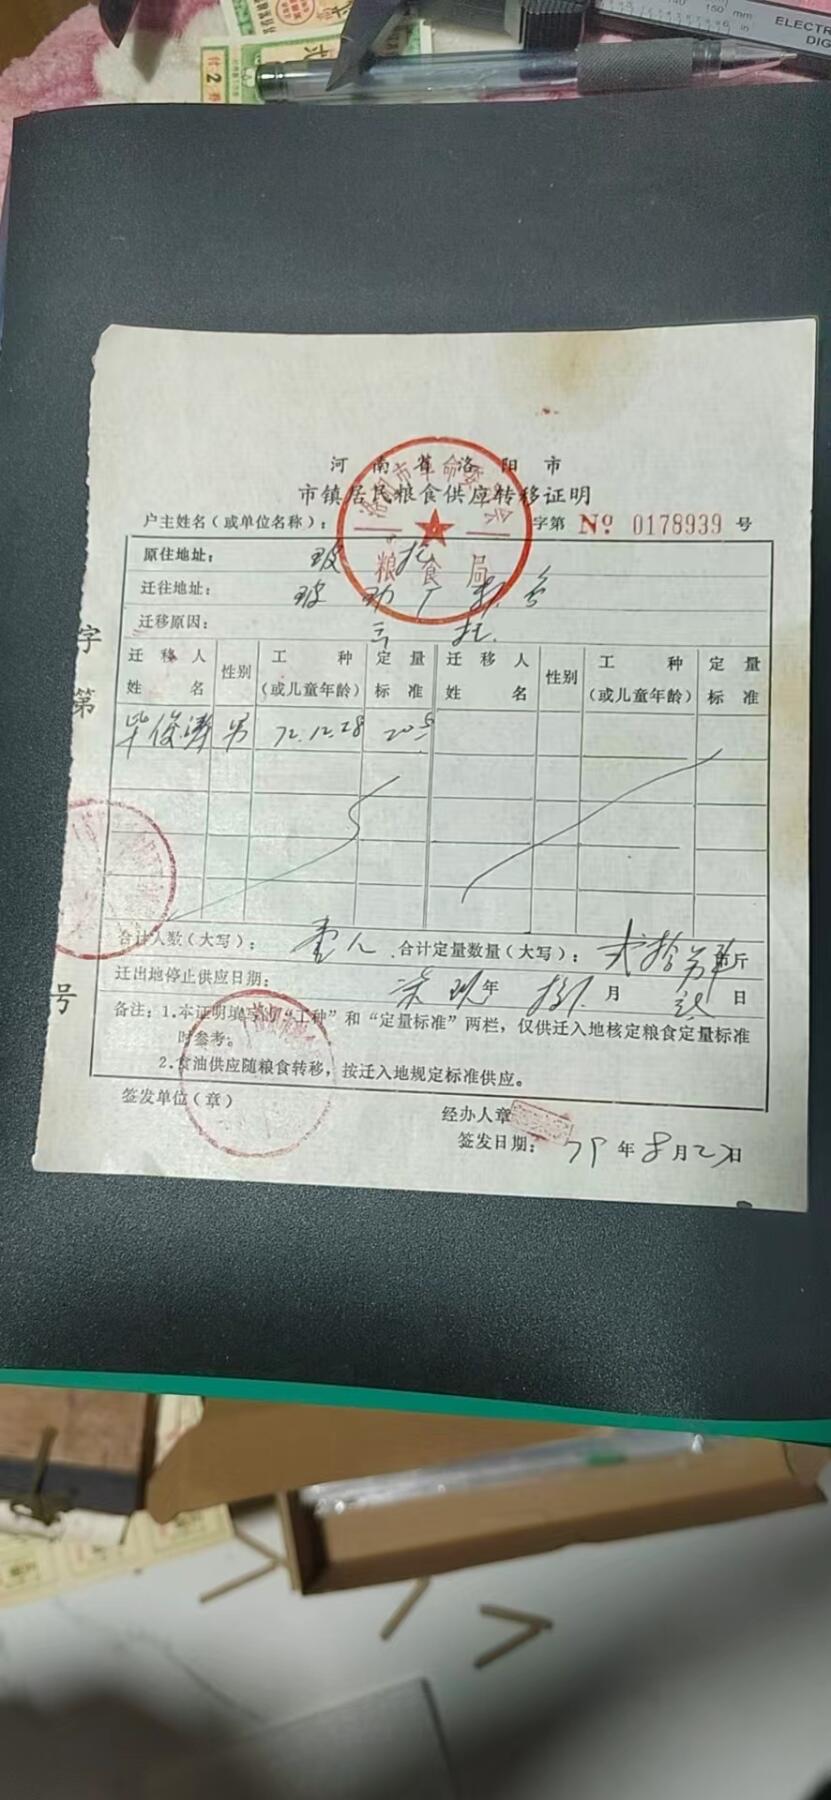 河南省洛阳市
市镇居民粮食供应转移证明
户主姓名(或单位名称): 字第 № 0178939 号
洛阳市革命委员会
粮食局
原住地址: 玻 托
迁往地址: 玻
迁移原因:
迁移人姓名 性别 工种(或儿童年龄) 定量标准 迁移人姓名 性别 工种(或儿童年龄) 定量标准
毕俊涛 男 72.12.28 20.5
合计人数(大写): 壹人 合计定量数量(大写): 贰拾 市斤
迁出地停止供应日期: 柒玖年 捌月 日
备注:1.本证明填写的“工种”和“定量标准”两栏,仅供迁入地核定粮食定量标准
时参考。
2.食油供应随粮食转移,按迁入地规定标准供应。
签发单位(章)
经办人章
签发日期: 79年8月2 日
字第
号
付2券
ELECTR
DIG
150 mm
in